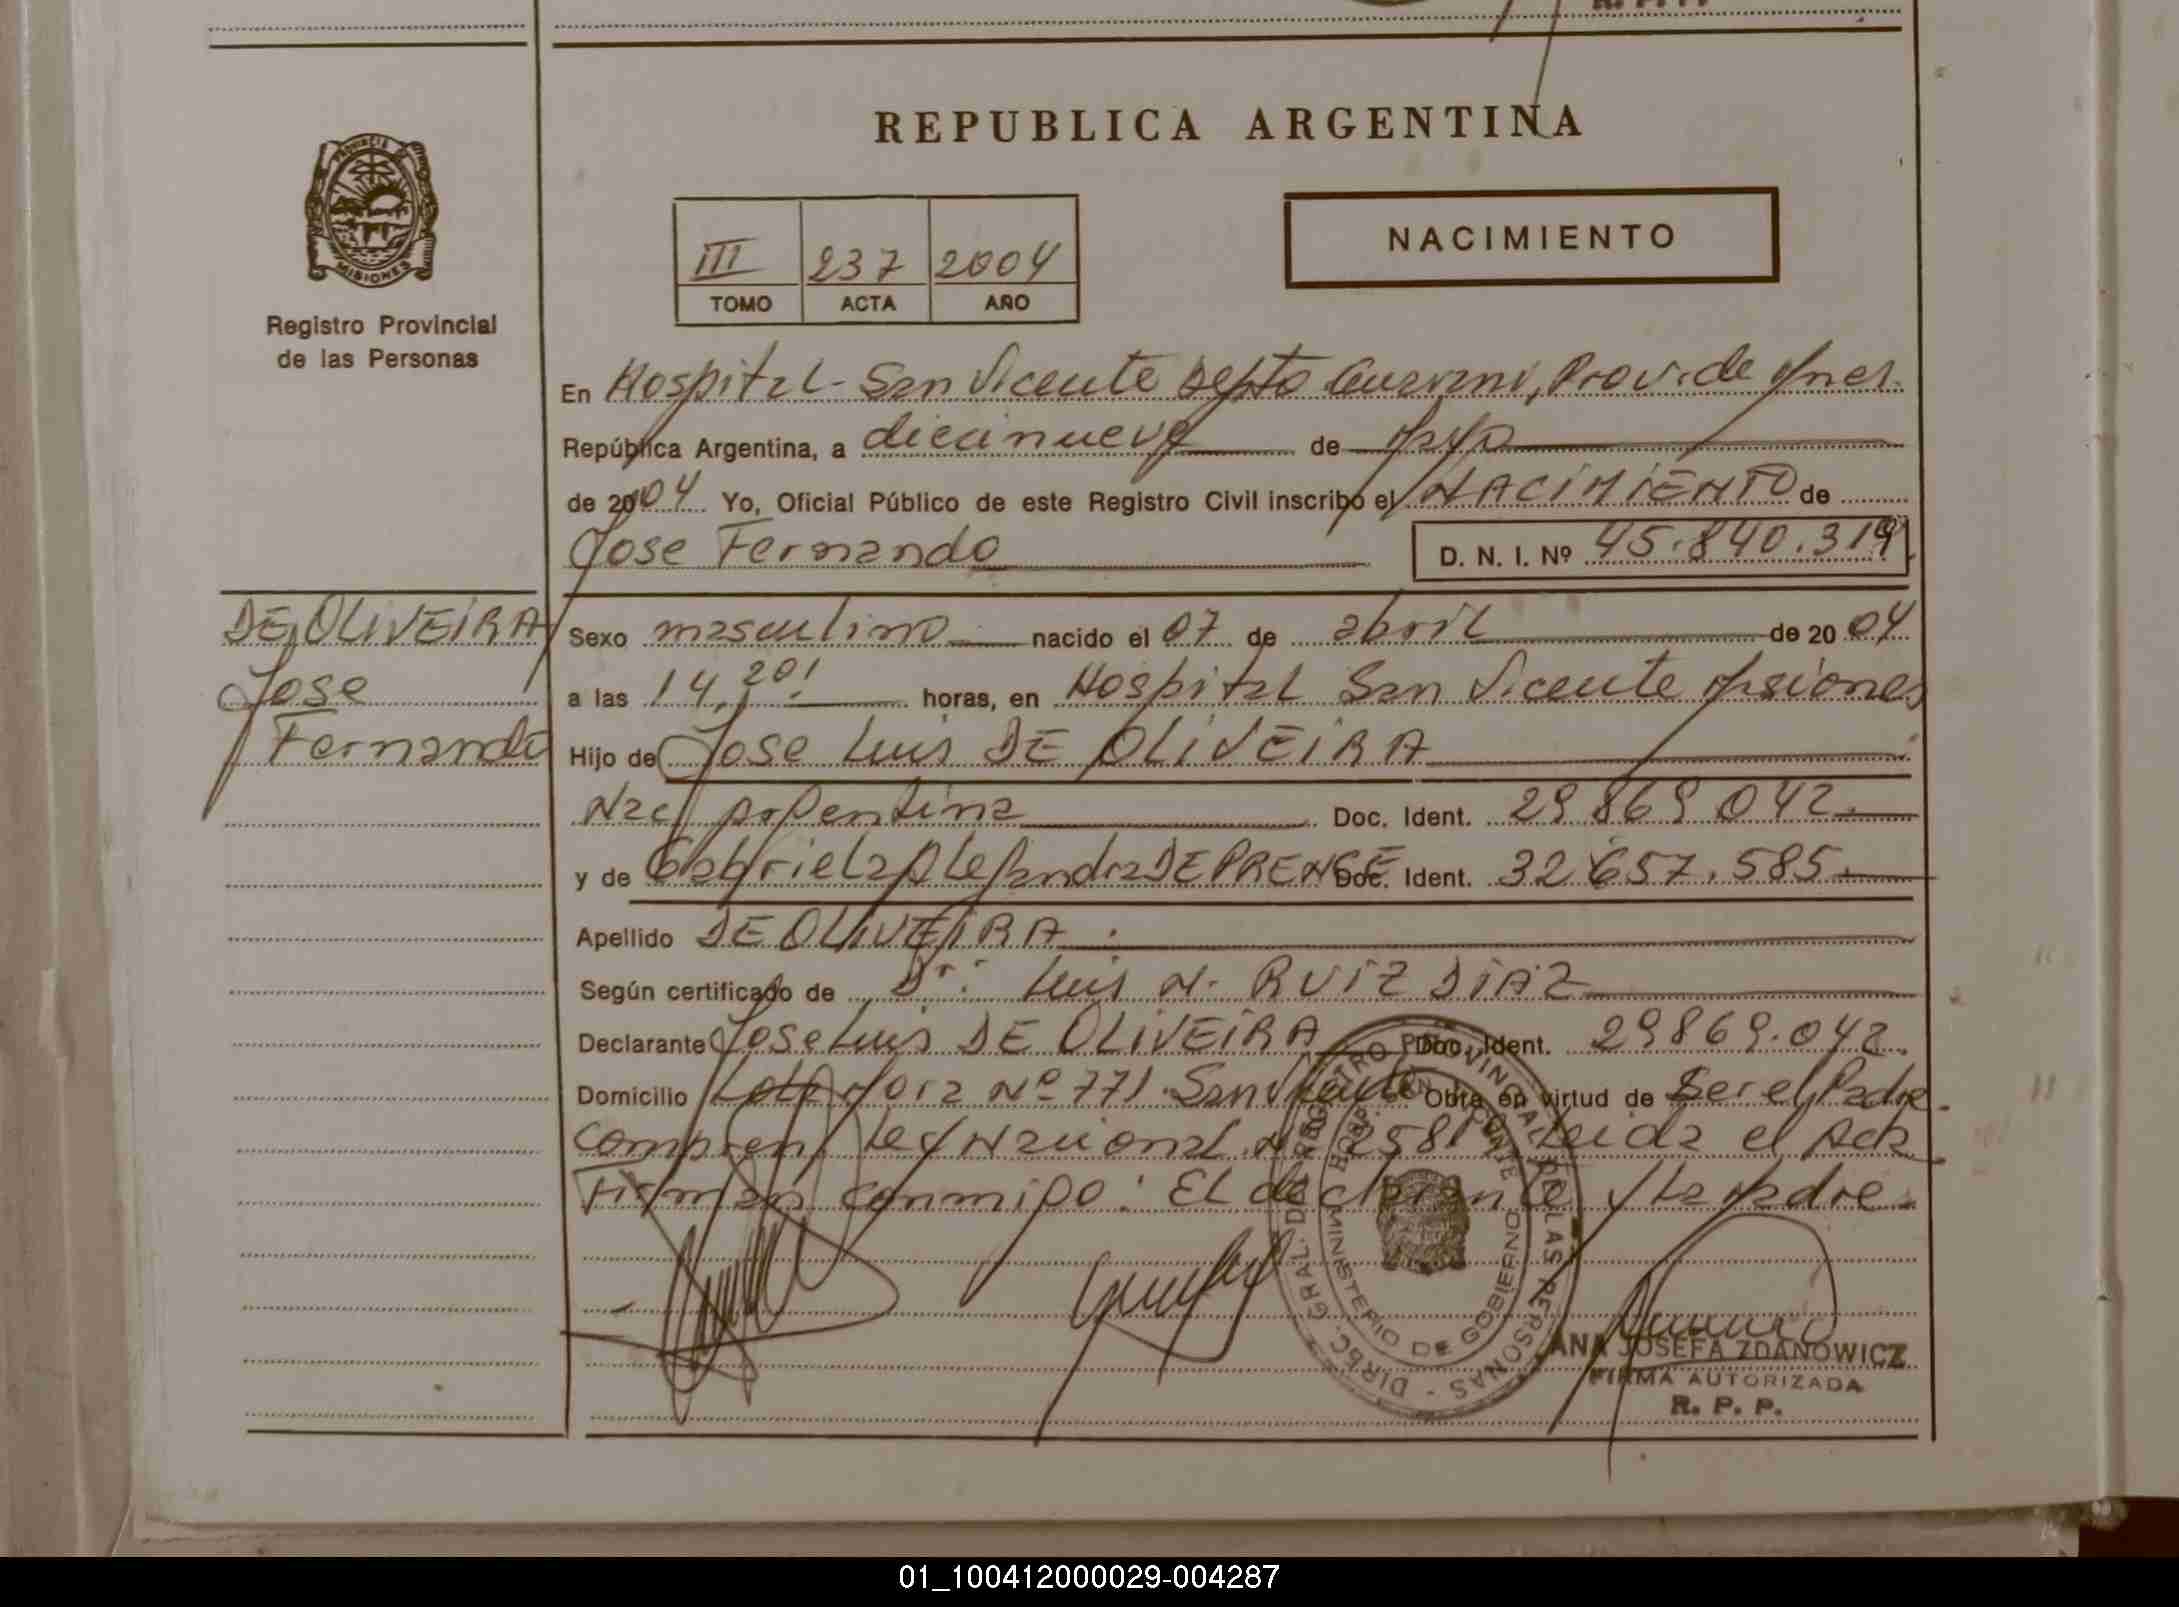 R. P. P.
REPUBLICA ARGENTINA
PROVINCIA DE
MISIONES
Registro Provincial
de las Personas
III 237 2004
TOMO ACTA AÑO
NACIMIENTO
En Hospital - San Vicente Depto Guarani, Prov. de Mnes.
República Argentina, a diecinueve de Mayo
de 2004 Yo, Oficial Público de este Registro Civil inscribo el NACIMIENTO de
Jose Fernando D. N. I. Nº 45.840.319
DE OLIVEIRA
Jose
Fernando
Sexo masculino nacido el 07 de abril de 2004
a las 14,20! horas, en Hospital San Vicente Misiones
Hijo de Jose Luis DE OLIVEIRA
Nac. Argentina Doc. Ident. 29869.042.
y de Gabriela Alejandra DEPRENCE Doc. Ident. 32657.585.
Apellido DE OLIVEIRA.
Según certificado de Dr: Luis N. RUIZ DIAZ
Declarante Jose Luis DE OLIVEIRA Doc. Ident. 29869.042
Domicilio Mora Nº 771 San Vicente Obra en virtud de Ser el Padre.
Ley Nacional Leida el Acta
Firman conmigo: El declarante y La Madre.
DIREC. GRAL. DEL REGISTRO PROVINCIAL DE LAS PERSONAS
MINISTERIO DE GOBIERNO
ANA JOSEFA ZDANOWICZ
FIRMA AUTORIZADA
R. P. P.
01_100412000029-004287